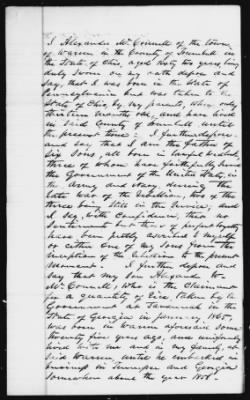 I Alexander McConnell of the town
of Warren in the County of Trumbull in
the State of Ohio, aged sixty two years, being
duly sworn on my oath depose and
say, that I was born in the State of
Pennsylvania but was taken to the
State of Ohio, by my parents, when only
thirteen months old, and have lived
in said County of Trumbull until
the present time: I further depose
and say that I am the father of
six sons, all born in lawful wedlock
three of whom have faithfully served
the Government of the United States, in
the army and Navy during the
late war of the rebellion, two of the
three being still in the service, and
I say, with confidence, that no
sentiment but of perfect loyalty
have been entertained by myself
or either one of my sons from the
inception of the rebellion to the present
moment. I further depose and
say that my son Alexander
McConnell, who is the Claimant
for a quantity of taken by the
Government at Savannah in the
State of Georgia in January 1865,
was born in Warren aforesaid some
twenty five years ago, and uniformly
lived with me and in my family, at
said Warren until he embarked in
business in Tennessee and Georgia
somewhere about the year